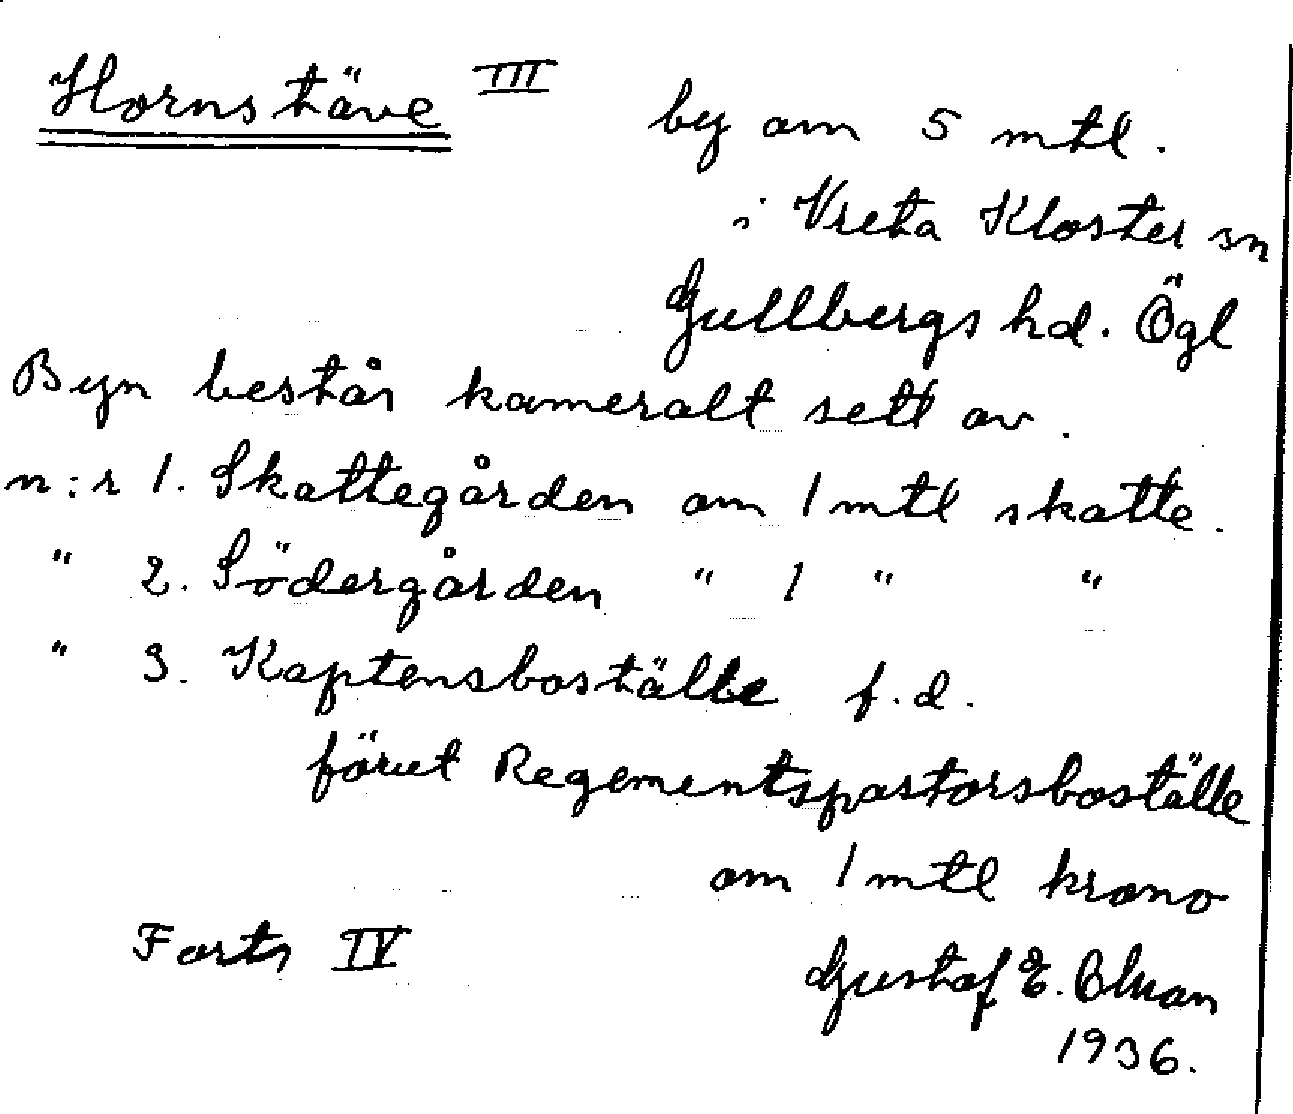 Hornstäve III by om 5 mtl.
i Vreta Kloster sn
Gullbergs hd. Ögl
Byn består kameralt sett av.
n:r 1. Skattegården om 1 mtl skatte.
" 2. Södergården " 1 " "
" 3. Kaptensboställe f.d.
förut Regementspastorsboställe
om 1 mtl krono
Forts IV Gustaf E.
1936.